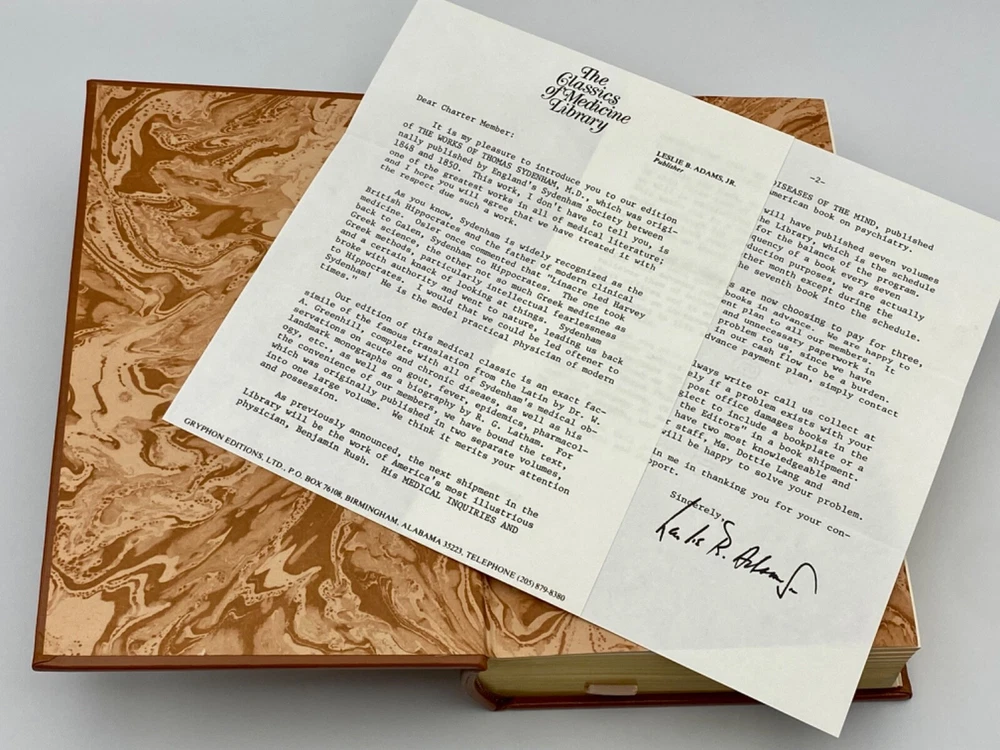 The
Classics
of Medicine
Library
LESLIE B. ADAMS, JR.
Publisher
Dear Charter Member:
It is my pleasure to introduce you to our edition
of THE WORKS OF THOMAS SYDENHAM, M.D., which was origi-
nally published by England's Sydenham Society between
1848 and 1850. This work, I don't have to tell you, is
one of the greatest works in all of medical literature;
and I hope you will agree that we have treated it with
the respect due such a work.
As you know, Sydenham is widely recognized as the
British Hippocrates and the father of modern clinical
medicine. Osler once commented that "Linacre led Harvey
back to Galen, Sydenham to Hippocrates. The one took
Greek science, the other not so much Greek medicine as
Greek methods, particularly intellectual fearlessness
and a certain knack of looking at things. Sydenham
broke with authority and went to nature, leading us back
to Hippocrates. I would that we could be led oftener to
Sydenham! He is the model practical physician of modern
times."
Our edition of this medical classic is an exact fac-
simile of the famous translation from the Latin by Dr. W.
A. Greenhill, complete with all of Sydenham's medical ob-
servations on acute and chronic diseases, as well as his
landmark monographs on gout, fever, epidemics, pharmacol-
ogy, etc., as well as a biography by R. G. Latham. For
the convenience of our members, we have bound the text,
which was originally published in two separate volumes,
into one large volume. We think it merits your attention
and possession.
As previously announced, the next shipment in the
Library will be the work of America's most illustrious
physician, Benjamin Rush. His MEDICAL INQUIRIES AND
GRYPHON EDITIONS, LTD., P.O. BOX 76108, BIRMINGHAM, ALABAMA 35223, TELEPHONE (205) 879-8380
-2-
DISEASES OF THE MIND, published
american book on psychiatry.
will have published seven volumes
he Library, which is the schedule
for the balance of the program.
quency of a book every seven
duction purposes, we are actually
ther month except during the
he seventh book into the schedule.
s are now choosing to pay for three,
books in advance. We are happy to
nt plan to all our members. It
and unnecessary paperwork in
problem to us; since we have
n our cash flow to be a burden.
dvance payment plan, simply contact
lways write or call us collect at
ly if a problem exists with your
post office damages books in the
glect to include a bookplate or a
the Editors' in a book shipment.
have two most knowledgeable and
staff, Ms. Dottie Lang and
will be happy to solve your problem.
n me in thanking you for your con-
pport.
Sincerely,